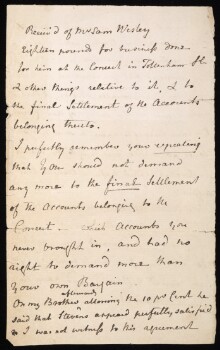 Receiv'd of Mr Sam Wesley
Eighteen pounds for business done
for him at the Concert in Tottenham St.
& other things relative to it, & to
the final Settlement of the Accounts
belonging thereto.
I perfectly remember your repeating
that you should not demand
any more to the final Settlement
of the Accounts belonging to the
Concert — Accounts you
never brought in, and had no
right to demand more than
your own Bargain
On my Brother allowing the 10 pr Cent he
said that appeared perfectly satisfied
& I was a witness to this agreement